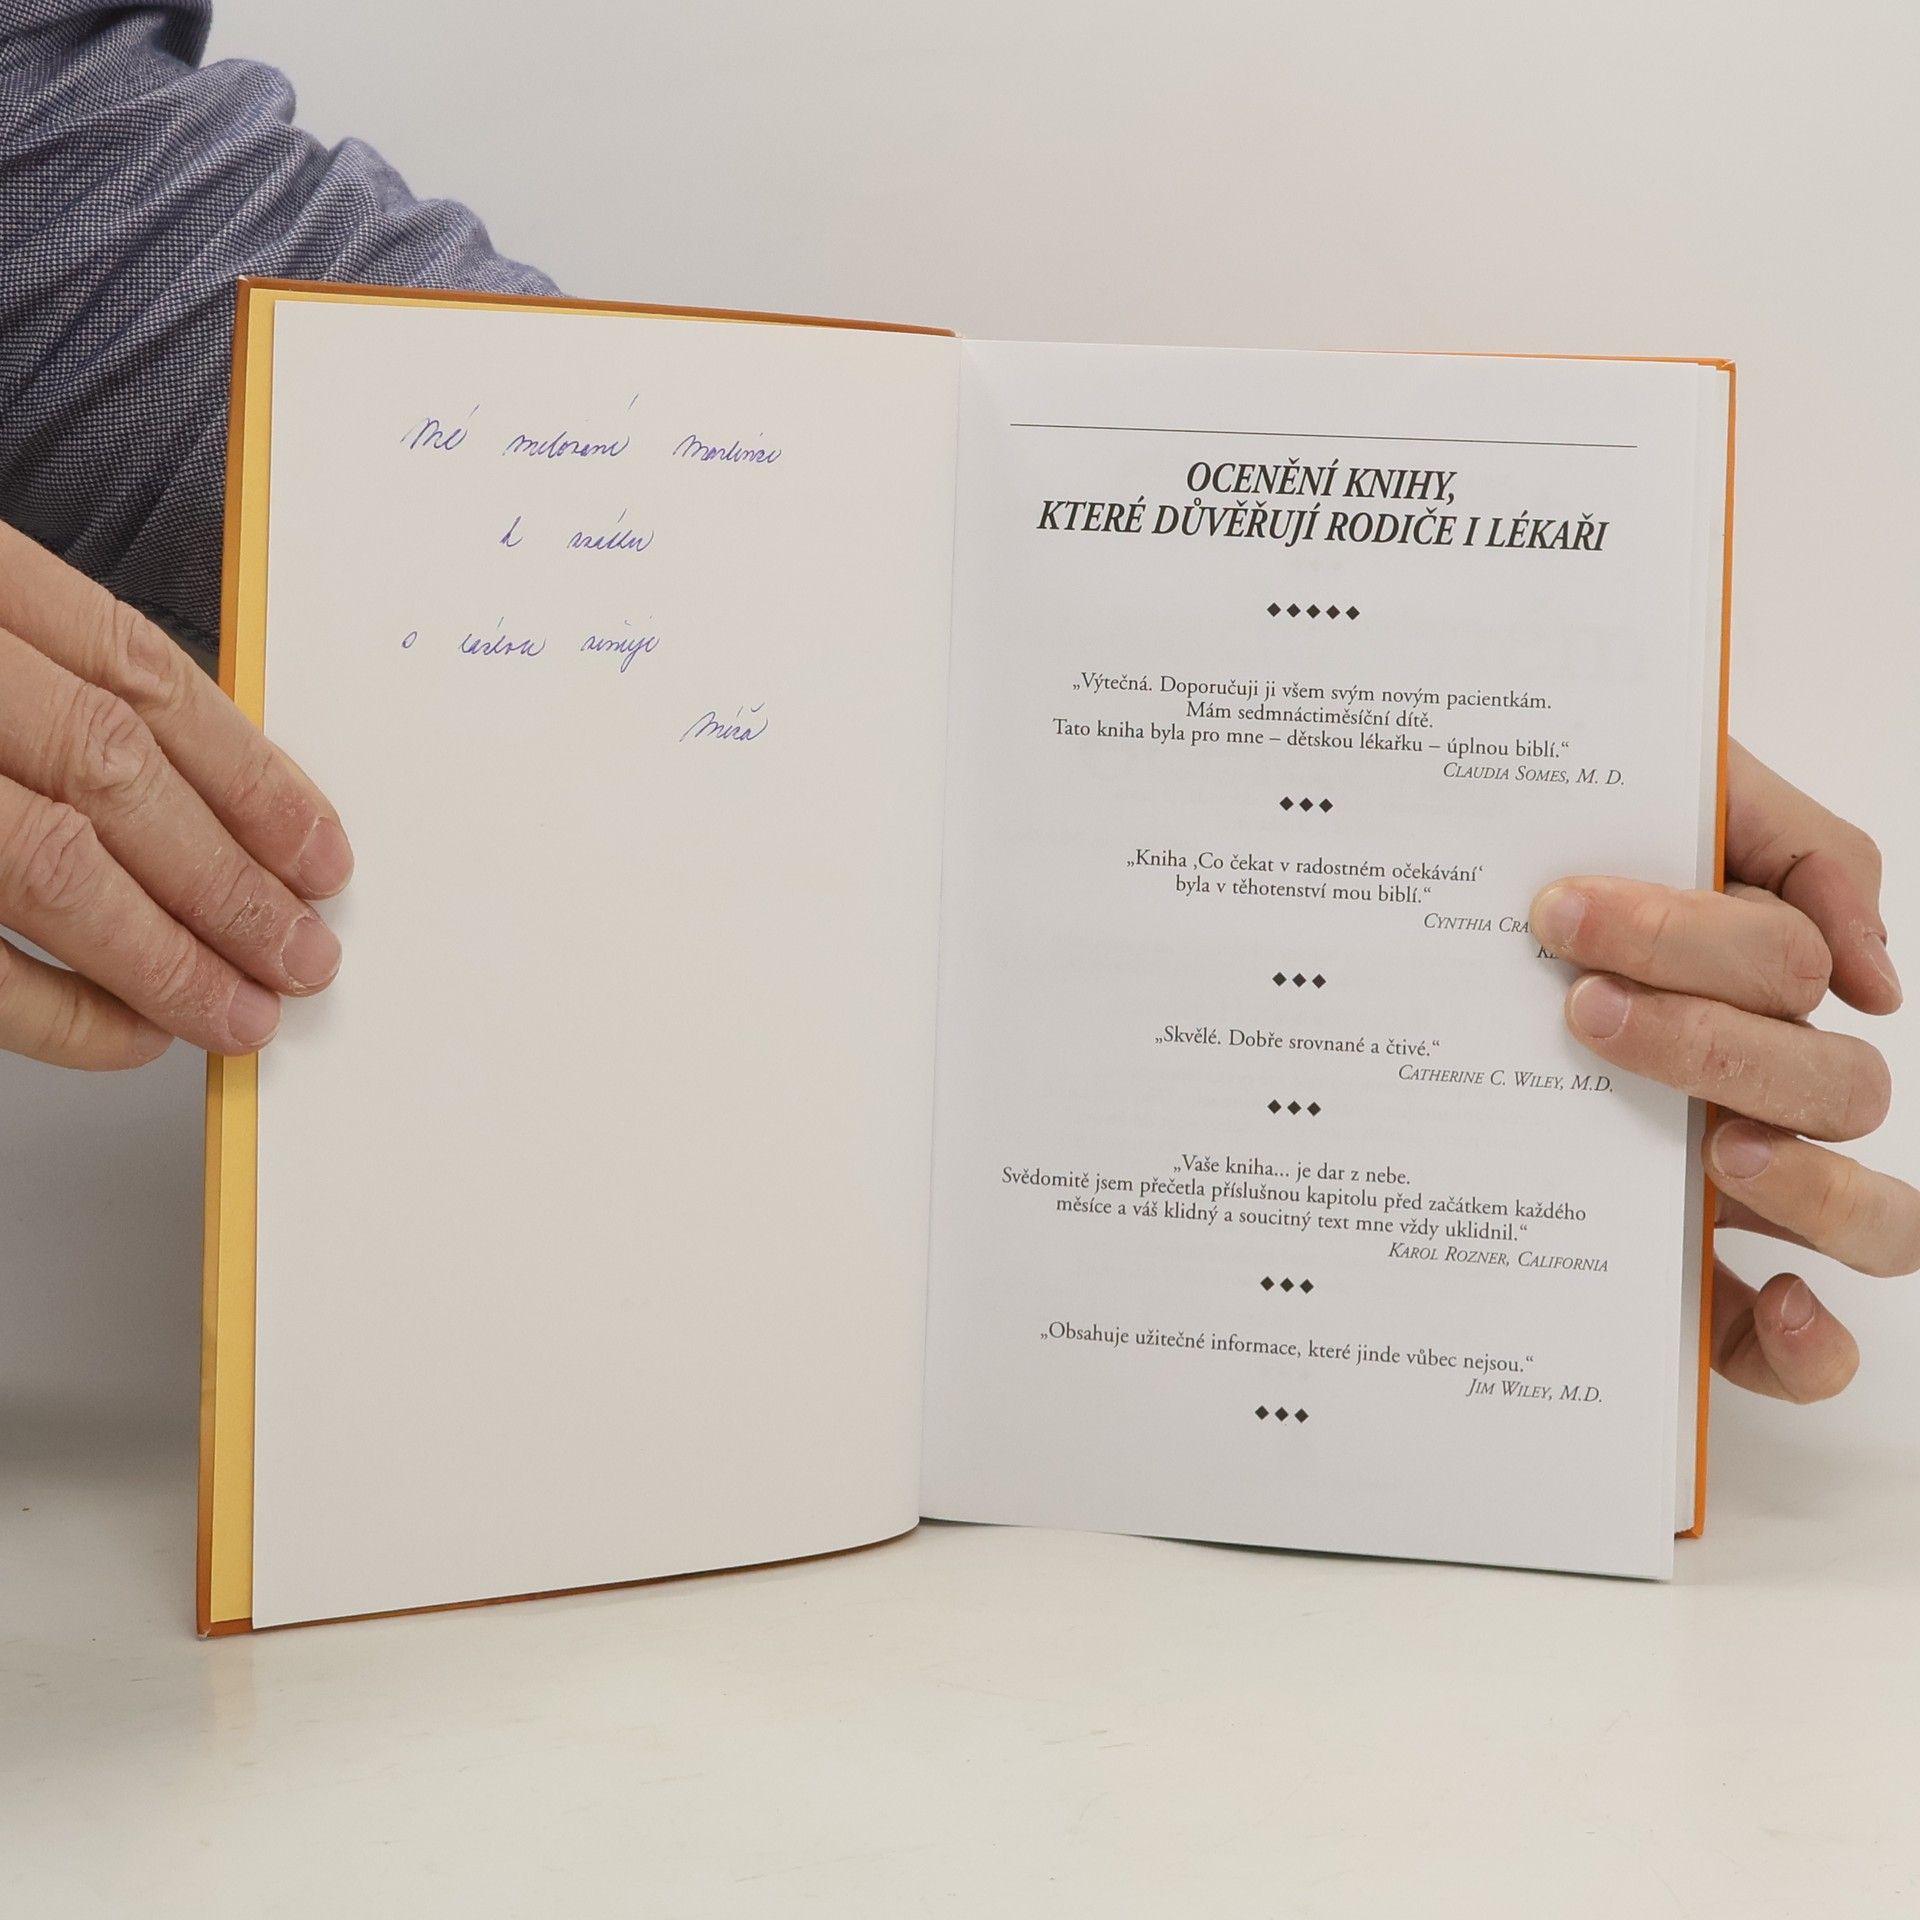 Mé milované Martince
k svátku
s láskou věnuje
Míša
OCENĚNÍ KNIHY,
KTERÉ DŮVĚŘUJÍ RODIČE I LÉKAŘI
„Výtečná. Doporučuji ji všem svým novým pacientkám.
Mám sedmnáctiměsíční dítě.
Tato kniha byla pro mne – dětskou lékařku – úplnou biblí.“
CLAUDIA SOMES, M. D.
„Kniha ‚Co čekat v radostném očekávání‘
byla v těhotenství mou biblí.“
CYNTHIA
„Skvělé. Dobře srovnané a čtivé.“
CATHERINE C. WILEY, M.D.
„Vaše kniha... je dar z nebe.
Svědomitě jsem přečetla příslušnou kapitolu před začátkem každého
měsíce a váš klidný a soucitný text mne vždy uklidnil.“
KAROL ROZNER, CALIFORNIA
„Obsahuje užitečné informace, které jinde vůbec nejsou.“
JIM WILEY, M.D.